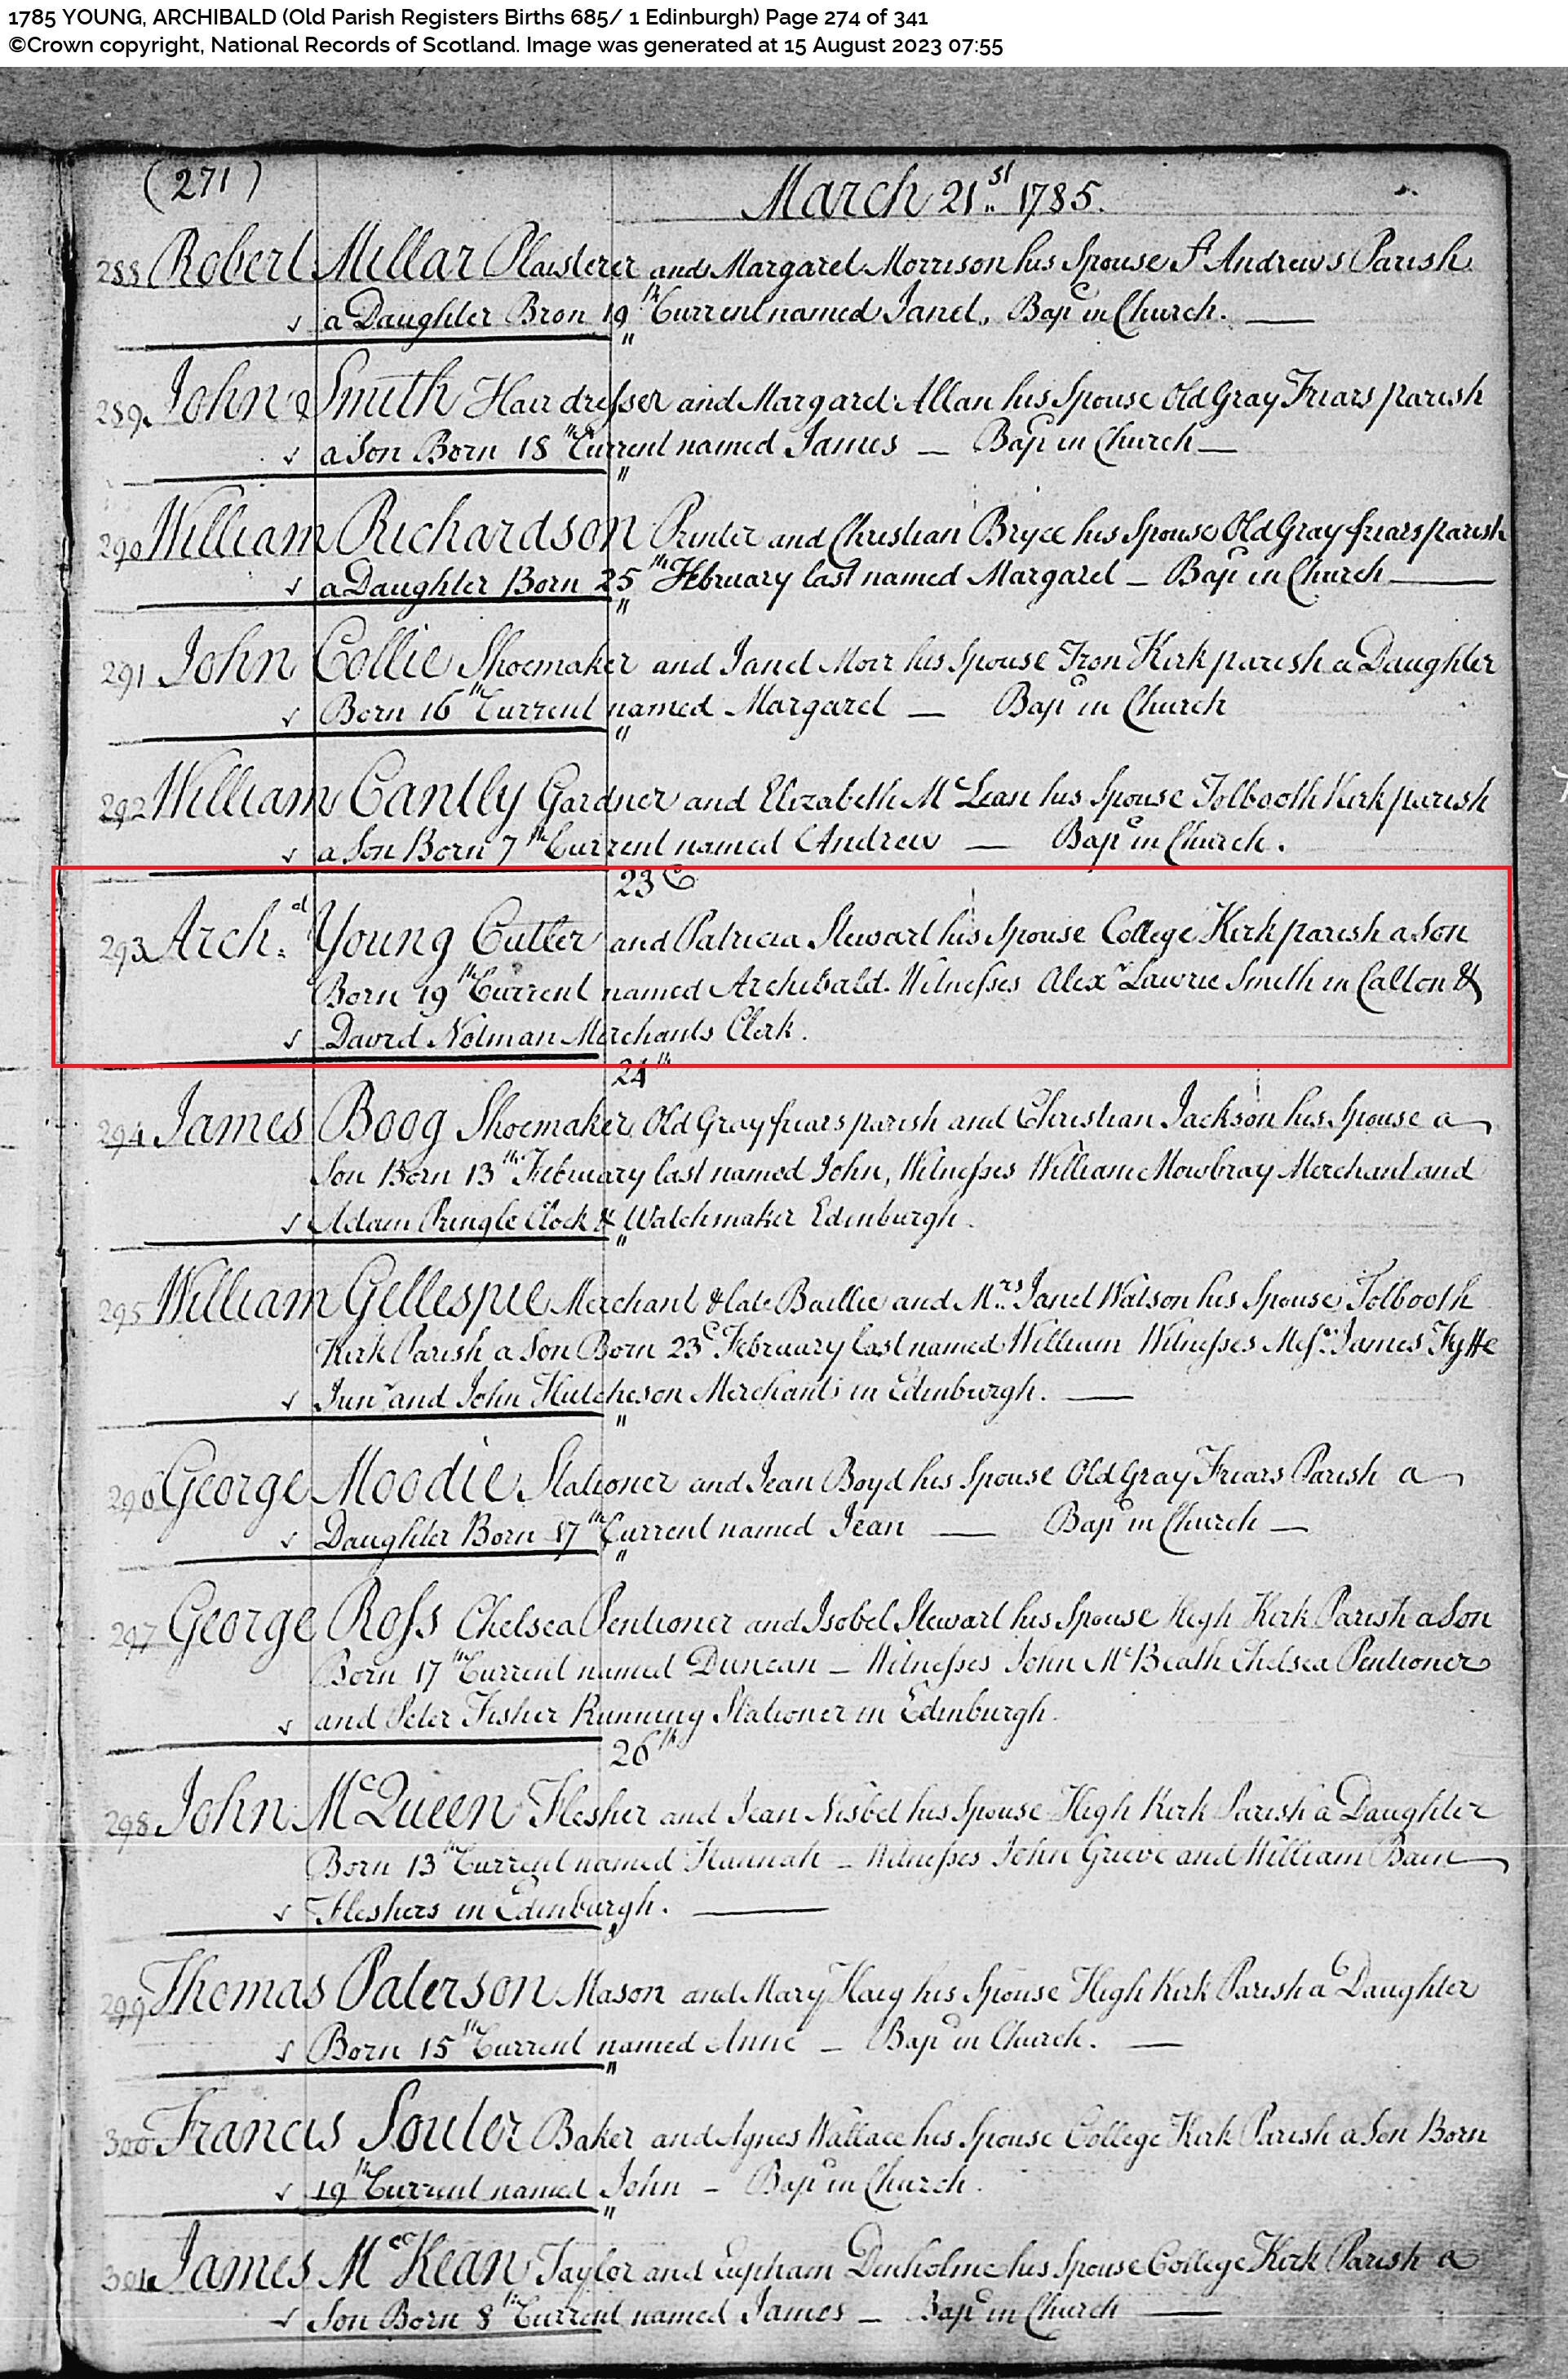 1785 YOUNG, ARCHIBALD (Old Parish Registers Births 685/ 1 Edinburgh) Page 274 of 341
©Crown copyright, National Records of Scotland. Image was generated at 15 August 2023 07:55
(271)
March 21st 1785.
288 Robert Millar Plaisterer and Margaret Morrison his Spouse St Andrews Parish
a Daughter Bron 19th Current named Janet, Bapd in Church.
"
289 John Smith Hairdresser and Margaret Allan his Spouse Old Gray Friars parish
a Son Born 18th Current named James — Bapd in Church —
"
290 William Richardson Printer and Christian Bryce his Spouse Old Gray friars parish
a Daughter Born 25th February last named Margaret — Bapd in Church —
"
291 John Collie Shoemaker and Janet Moir his Spouse Tron Kirk parish a Daughter
Born 16th Current named Margaret — Bapd in Church
"
292 William Cantly Gardner and Elizabeth McLean his Spouse Tolbooth Kirk parish
a Son Born 7th Current named Andrew — Bapd in Church.
23d
293 Archd Young Cutler and Patricia Stewart his Spouse College Kirk parish a Son
Born 19th Current named Archibald. Witnesses Alexr Lawrie Smith in Calton &
David Notman Merchants Clerk.
24th
294 James Boog Shoemaker Old Grayfriars parish and Christian Jackson his Spouse a
Son Born 13th February last named John, Witnesses William Mowbray Merchant and
Adam Pringle Clock & Watchmaker Edinburgh.
"
295 William Gellespie Merchant & late Baillie and Mrs Janet Watson his Spouse Tolbooth
Kirk Parish a Son Born 23d February last named William Witnesses Messrs James Fyffe
Junr and John Hutcheson Merchants in Edinburgh. —
"
296 George Moodie Stationer and Jean Boyd his Spouse Old Gray Friars Parish a
Daughter Born 17th Current named Jean — Bapd in Church —
"
297 George Ross Chelsea Pentioner and Isobel Stewart his Spouse High Kirk Parish a Son
Born 17th Current named Duncan — Witnesses John McBeath Chelsea Pentioner
and Peter Fisher Running Stationer in Edinburgh.
26th
298 John McQueen Flesher and Jean Nisbet his Spouse High Kirk Parish a Daughter
Born 13th Current named Hannah — Witnesses John Grieve and William Bain
Fleshers in Edinburgh. —
"
299 Thomas Paterson Mason and Mary Haig his Spouse High Kirk Parish a Daughter
Born 15th Current named Anne — Bapd in Church. —
"
300 Francis Souter Baker and Agnes Wallace his Spouse College Kirk Parish a Son Born
19th Current named John — Bapd in Church.
"
301 James McKean Taylor and Eupham Denholme his Spouse College Kirk Parish a
Son Born 8th Current named James — Bapd in Church —